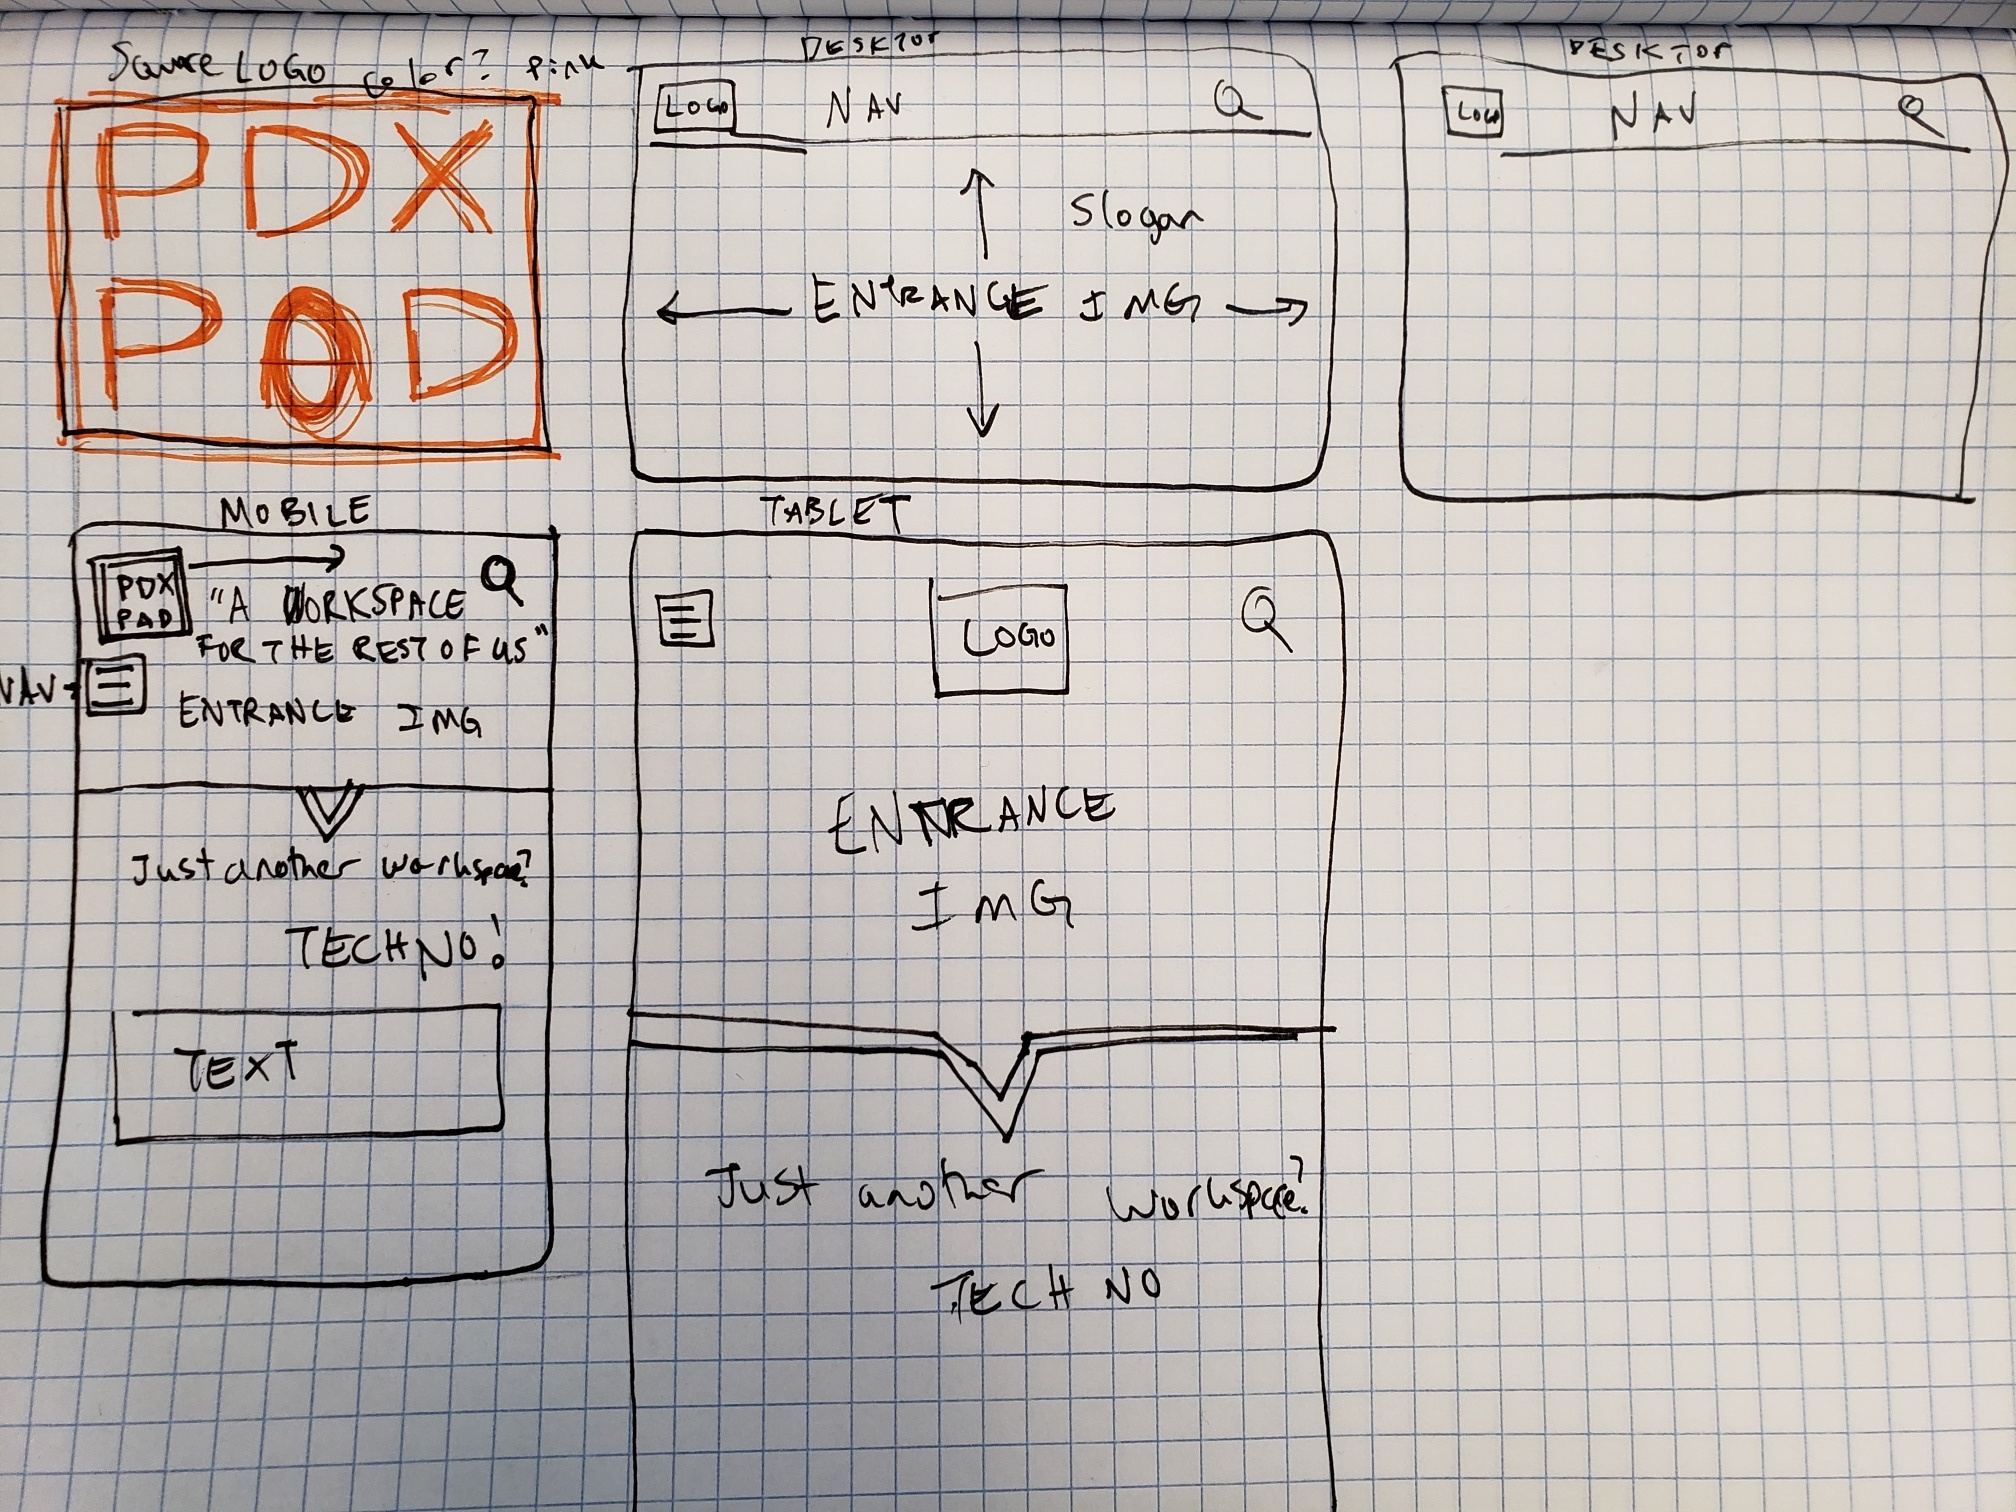 Square LOGO color? pink
PDX
POD
DESKTOP
LOGO NAV
Slogan
ENTRANCE IMG
DESKTOP
LOGO NAV
MOBILE
PDX
PAD
"A WORKSPACE
FOR THE REST OF US"
NAV
ENTRANCE IMG
Just another workspace?
TECHNO!
TEXT
TABLET
LOGO
ENTRANCE
IMG
Just another workspace?
TECH NO